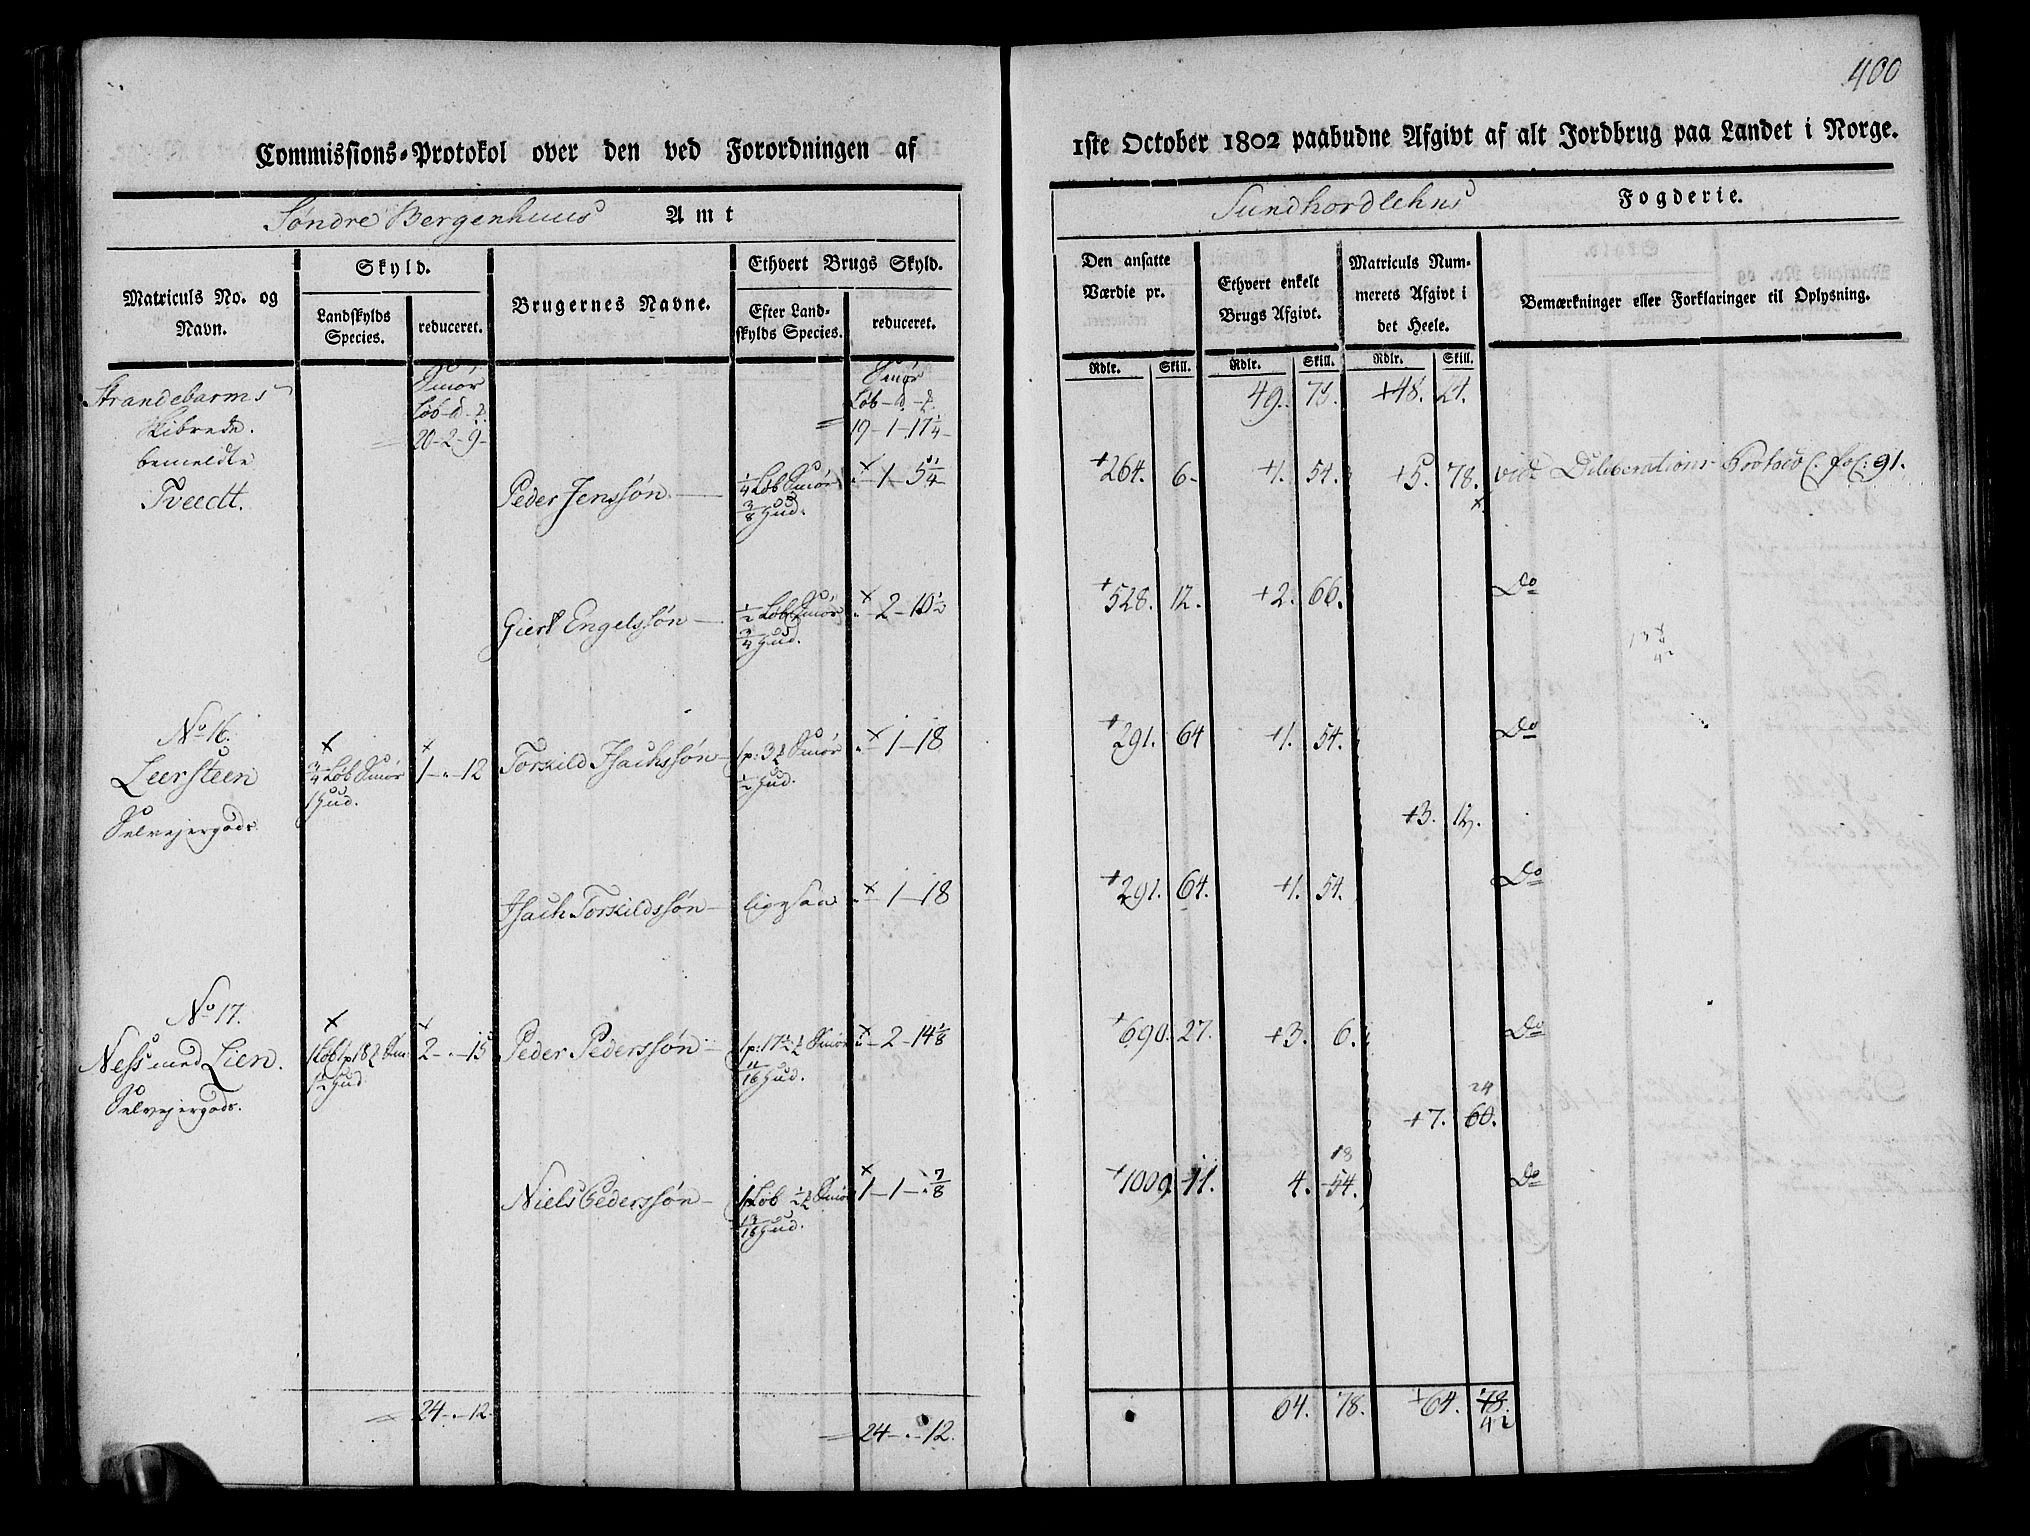 400
Commissions-Protokol over den ved Forordningen af
1ste October 1802 paabudne Afgivt af alt Jordbrug paa Landet i Norge.
Søndre Bergenhuus Amt
Sundhordlehns Fogderie.
Matriculs No. og Navn.
Skyld.
Landskylds Species.
reduceret.
Brugernes Navne.
Ethvert Brugs Skyld.
Efter Landskylds Species.
reduceret.
Den ansatte Værdie pr.
Ethvert enkelt Brugs Afgivt.
Matriculs Nummerets Afgivt i det Heele.
Bemærkninger eller Forklaringer til Oplysning.
Rdlr. Skill. Rdlr. Skill. Rdlr. Skill.
Strandebarms
Skibrede.
bemeldte
Tveedt.
Smør
Løb
20-2-9-
Smør
Løb
19-1-17 1/4-
49. 75. +48. 21.
Peder Jenssøn 1/4 Løb Smør 3/8 Hud. 1-5 1/4 +264. 6- +1. 54. +5. 78. vide Deliberations Protoco: fol: 91.
Giert Engelssøn 1/2 Løb Smør 3/4 Hud. 2-10 1/2 +528. 12. +2. 66. Do
No 16.
Leersteen
Selvejergods
3/4 Løb Smør 1 Hud. 1-"-12 Torkild Isachssøn 1p: 3 Smør 1/2 Hud. 1-18 +291. 64 +1. 54. Do
+3. 12.
Isach Torkildssøn ligesaa 1-18 +291. 64. +1. 54. Do
No 17.
Ness med Lien.
Selvejergods.
1 Løb 1p 18 Smør 1 1/2 Hud 2-"-15 Peder Pederssøn 1p: 17 1/2 Smør 11/16 Hud. 2-14 1/8 +690. 27. +3. 6. Do
24
+7. 60.
18
Niels Pederssøn 1 Løb 1/2 Smør 13/16 Hud. 1-1-"7/8 +1009. 11. 4. 54. Do
24-"-12. 24-"-12. 64. 78. +64. 78.
42